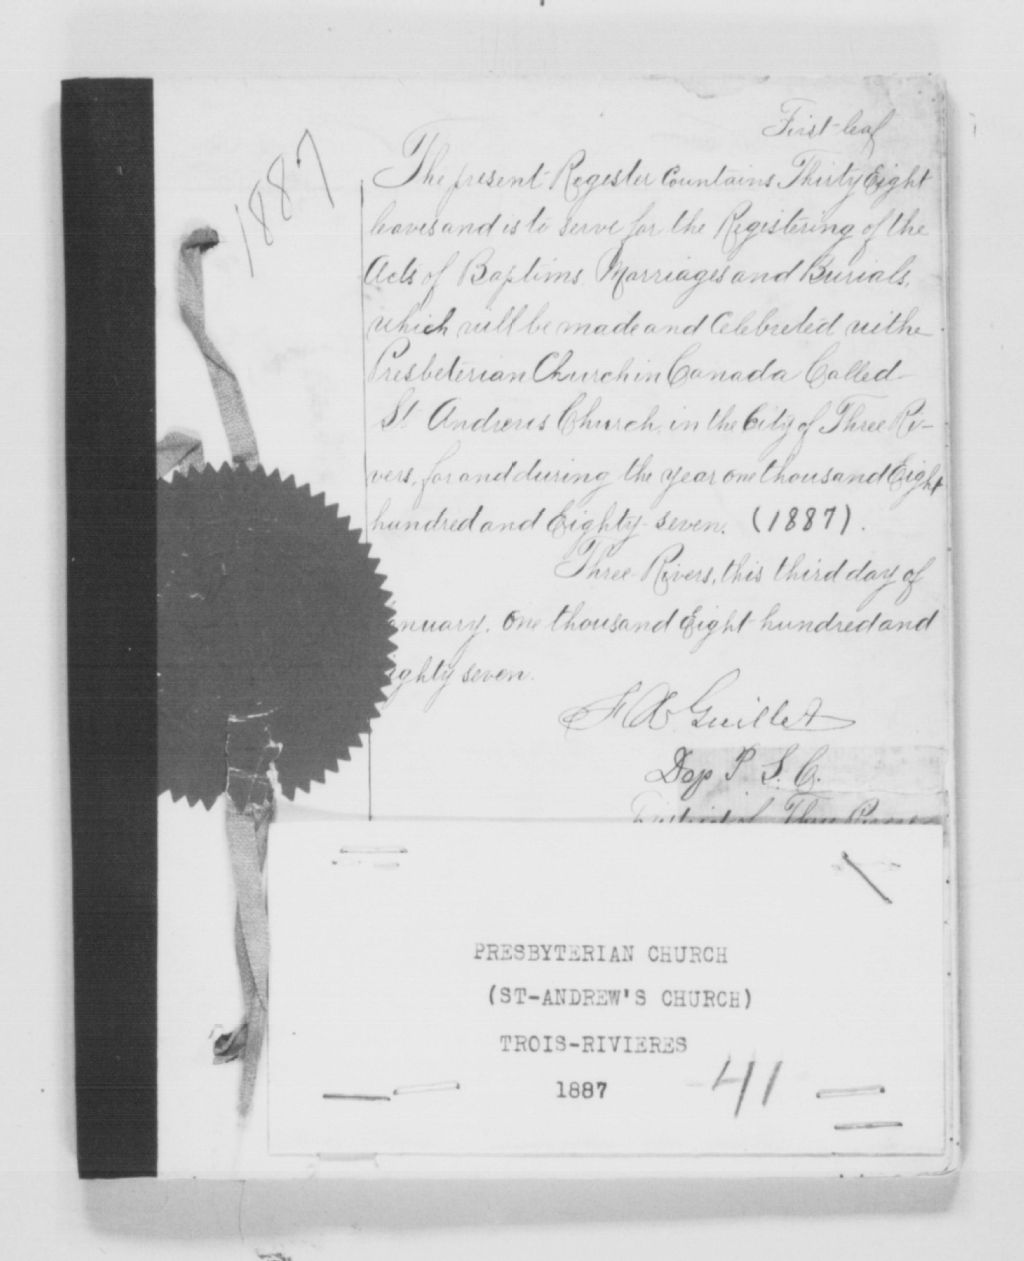 First-leaf
1887
The present Regester Countains Thirty Eight
leaves and is to serve for the Registering of the
Acts of Baptims Marriages and Burials,
which will be made and Celebreted withe
Presbeterian Church in Canada Called
St Andrews Church, in the City of Three Ri-
vers, for and during the year one thousand Eight
hundred and Eighty-seven. (1887).
Three Rivers, this third day of
anuary, One thousand Eight hundred and
ighty seven.
F X Guillet
Dep P. S. C.
District of Three Rivers
PRESBYTERIAN CHURCH
(ST-ANDREW'S CHURCH)
TROIS-RIVIERES
1887
41